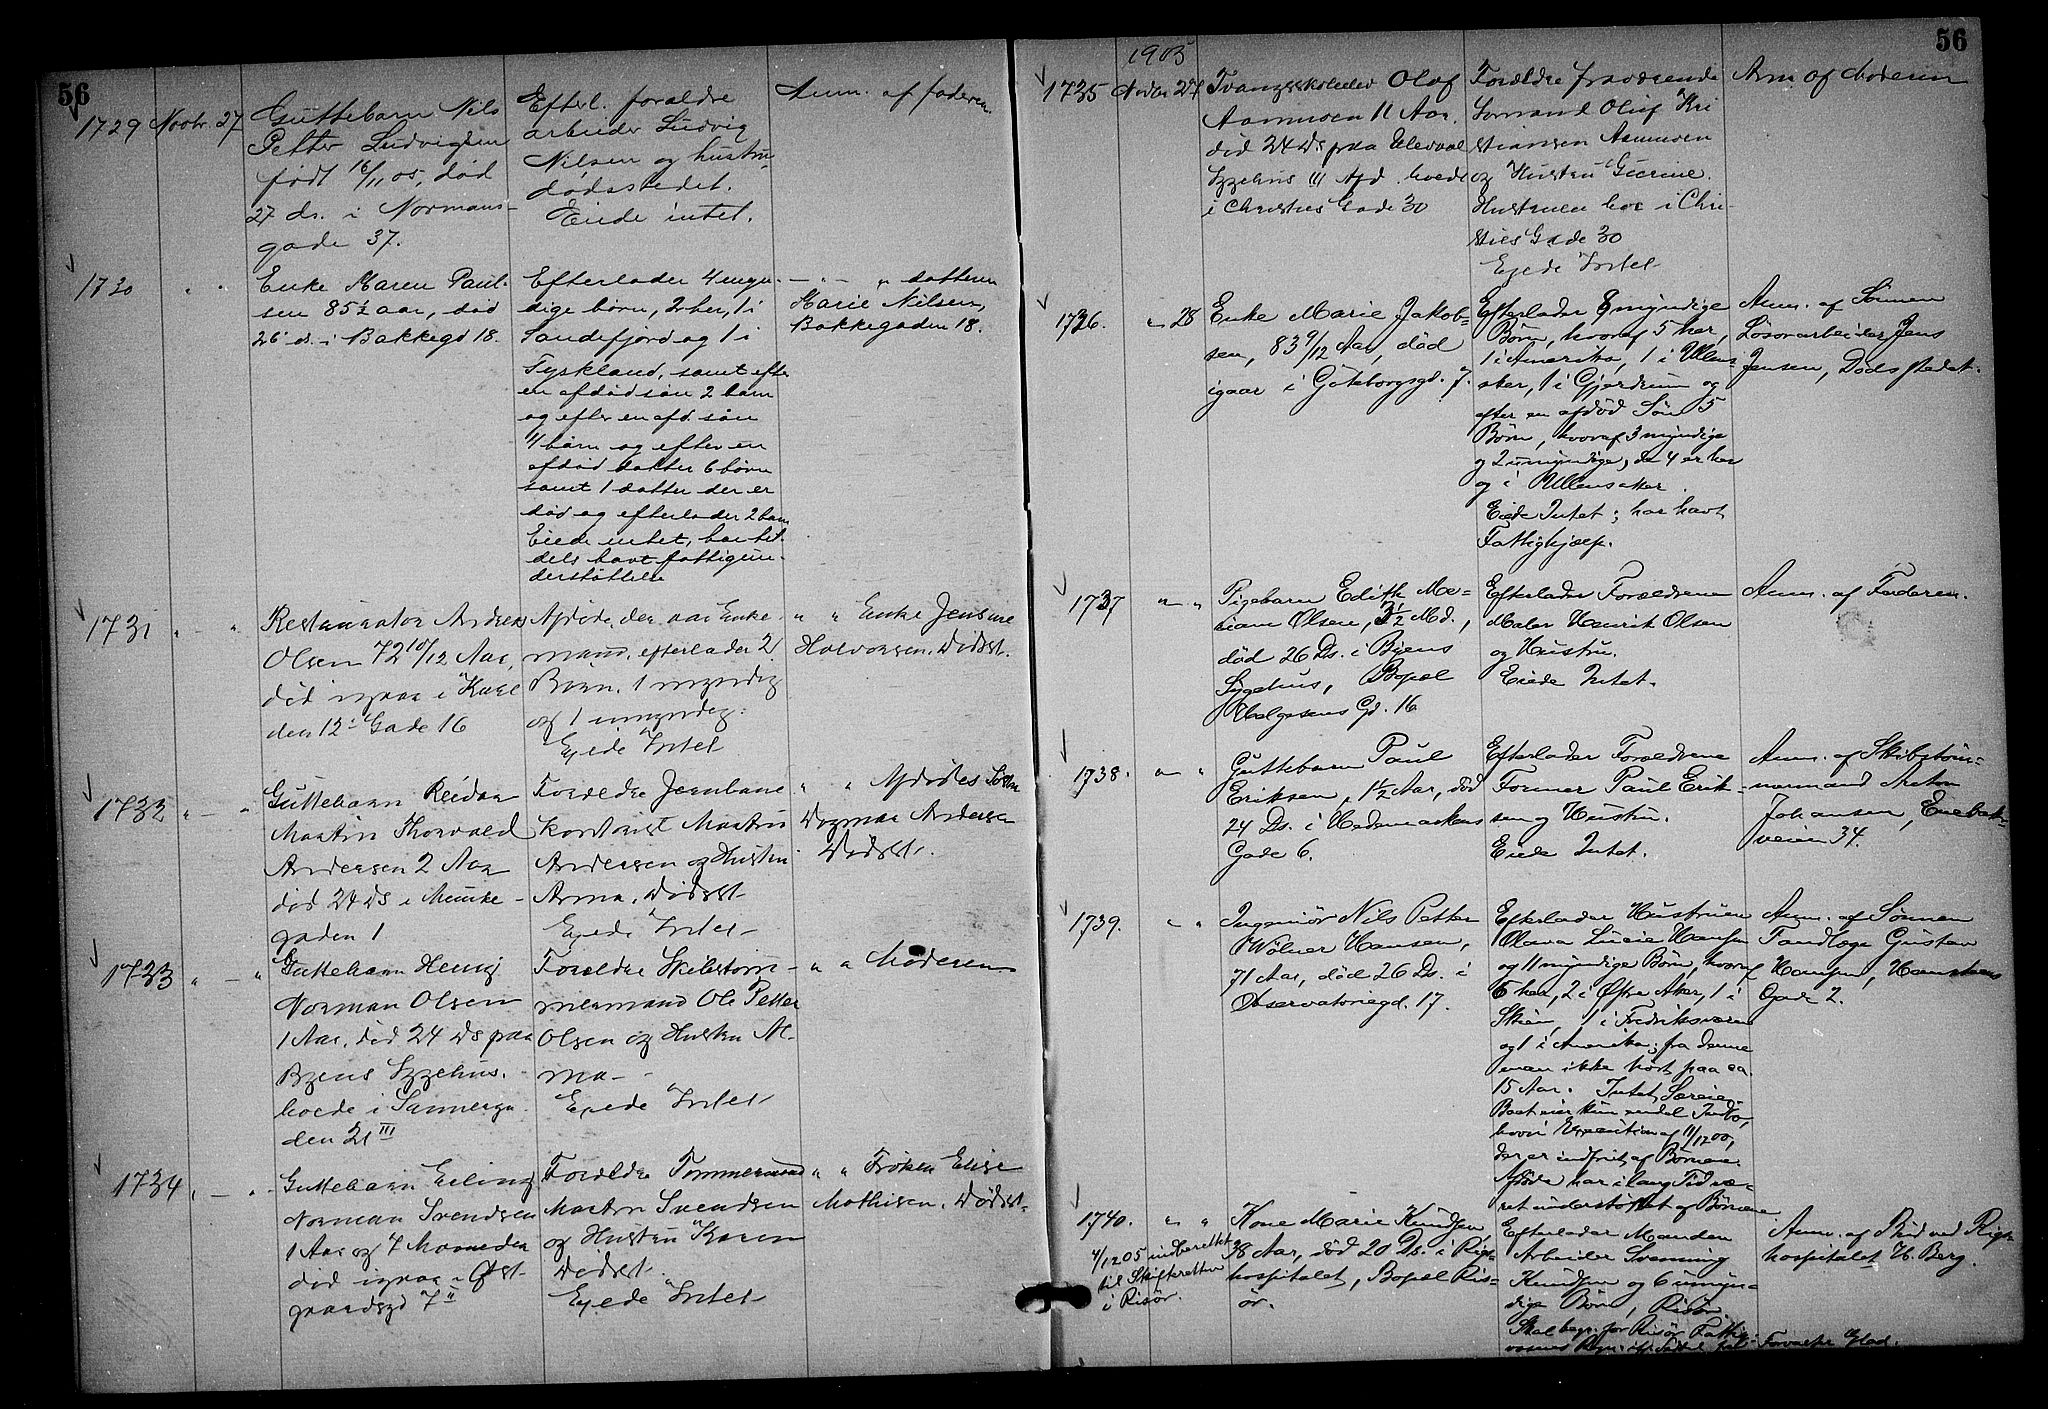 56
1729 Novbr. 27
Guttebarn Nils
Petter Ludvigsen
født 16/11 05, død
27 ds. i Normans-
gade 37.
Efterl. foraldre
arbeider Ludvig
Nilsen og hustru
dødsstedet.
Eiede intet.
Anm. af faderen.
1730 " "
Enke Maren Paul-
sen 85 1/2 aar, død
26 ds. i Bakkegd 18.
Efterlader 4 myn-
dige børn, 2 her, 1 i
Sandefjord og 1 i
Tyskland, samt efter
en afdød søn 2 barn
og efter en afd. søn
4 børn og efter en
afdød datter 6 børn
samt 1 datter der er
død og efterlader 2 barn
Eiede intet, har til-
dels havt fattigun-
derstøttelse
— " — " datteren
Marie Nilsen,
Bakkegaden 18.
1731 " — "
Restauratør Andreas
Olsen 72 10/12 Aar,
død igaar i Karl
den 12' Gade 16
Afdøde, der var Enke-
mand, efterlader 2
Børn, 1 myndig
og 1 umyndig.
Ejede Intet
" " Enke Jensine
Halvorsen, Dødsst.
1732 " — "
Guttebarn Reidar
Martin Thorvald
Andersen 2 Aar
død 24 Ds i Munke-
gaden 1
Forældre Jernbane
kontorist Martin
Andersen og Hustru
Anna, Dødsst.
Ejede Intet
" " Afdødes Søster
Dagmar Andersen
Dødsst.
1733 " — "
Guttebarn Henry
Norman Olsen
1 Aar, død 24 Ds paa
Byens Sygehus,
boede i Sannerga-
den 21 III
Forældre Skibstøm-
mermand Ole Petter
Olsen og Hustru Al-
ma -
Ejede Intet
" " Moderen
1734 " — "
Guttebarn Erling
Norman Svendsen
1 Aar og 7 Maaneder
død igaar i Øst-
gaardsgd 7 II
Forældre Tømmermand
Martin Svendsen
og Hustru Karen
Dødsst.
Ejede Intet
" " Frøken Elise
Mathisen, Dødsst.
56
1905
1735 Novbr 27
Tvangsskoleelev Olaf
Aamunsen 11 Aar,
død 24 Ds paa Ulevaal
Sygehus III Afd. boede
i Christies Gade 30
Forældre fraværende
Sømand Oluf Kri
stiansen Aamunsen
og Hustru Gurine.
Hustruen bor i Chri-
sties Gade 30
Ejede Intet
Anm af Moderen
1736. " 28
Enke Marie Jakob-
sen, 83 9/12 Aar, død
igaar i Göteborgsgd. 7.
Efterlader 8 myndige
Børn, hvoraf 5 her,
1 i Amerika, 1 i Ullens-
aker, 1 i Gjerdrum og
efter en afdød Søn 5
Børn, hvoraf 3 myndige
og 2 umyndige, de 4 er her
og i Ullensaker.
Eiede Intet; har havt
Fattighjælp.
Anm. af Sønnen
Løsarbeider Jens
Jensen, Dødsstedet.
1737 " — "
Pigebarn Edith Me-
riam Olsen, 3 1/2 Md.,
død 26 Ds. i Byens
Sygehus, Bopæl
Helgesens Gd. 16
Efterlader Forældrene
Maler Henrik Olsen
og Hustru.
Eiede Intet.
Anm. af Faderen.
1738. " "
Guttebarn Paul
Eriksen, 1 1/2 Aar, død
24 Ds. i Hedemarkens
Gade 6.
Efterlader Forældrene
Former Paul Erik-
sen og Hustru.
Eiede Intet.
Anm. af Skibstøm-
mermand Anton
Johansen, Enebak-
veien 34.
1739. " "
Ingeniør Nils Petter
Wølner Hansen,
71 Aar, død 26 Ds. i
Observatoriegd. 17.
Efterlader Hustruen
Olava Lucie Hansen
og 11 myndige Børn, hvoraf
6 her, 2 i Østre Aker, 1 i
Skien, 1 i Fredriksværn
og 1 i Amerika; fra denne
man ikke hørt paa ca.
15 Aar. Intet Særeie.
Boet eier kun endel Indbo,
hvori Execution af 11/12 00,
der er indfriet af Børnene.
Afdøde har i lang Tid væ-
ret understøttet af Børnene
Anm. af Sønnen
Tandlæge Gustav
Hansen, Hansteens
Gade 2.
1740. " "
4/12 05 indberettet
til Skifteretten
i Risør.
Kone Marie Knudsen,
38 Aar, død 20 Ds. i Rigs-
hospitalet, Bopæl Ris-
ør.
Efterlader Manden
Arbeider Svenning
Knudsen og 6 umyn-
dige Børn, Risør.
Skal begr. for Risør Fattig-
Anm. af Bud ved Rigs-
hospitalet H. Berg.